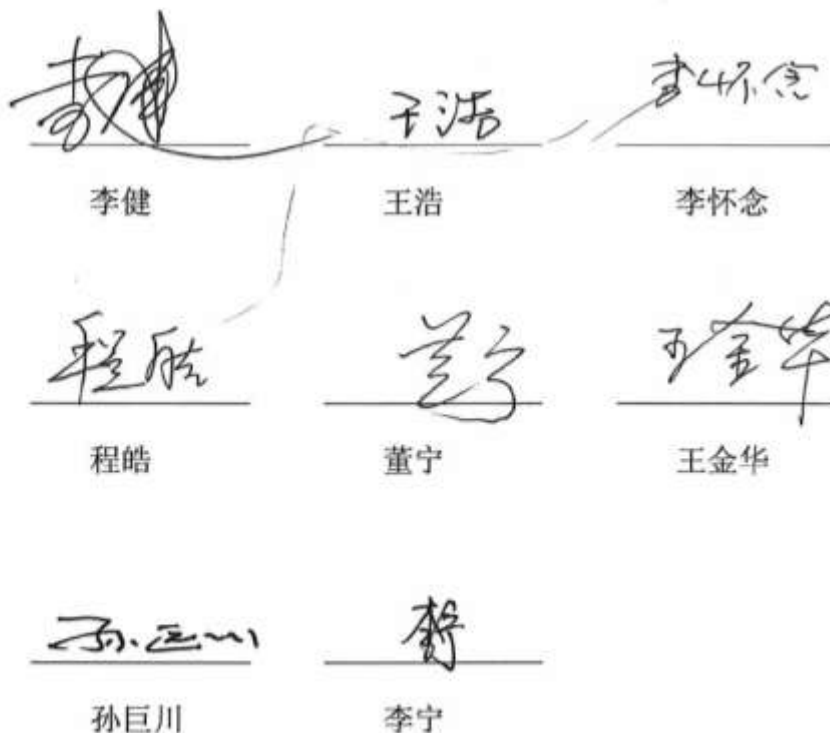 李健 王浩 李怀念
李健 王浩 李怀念
程皓 董宁 王金华
程皓 董宁 王金华
孙巨川 李宁
孙巨川 李宁